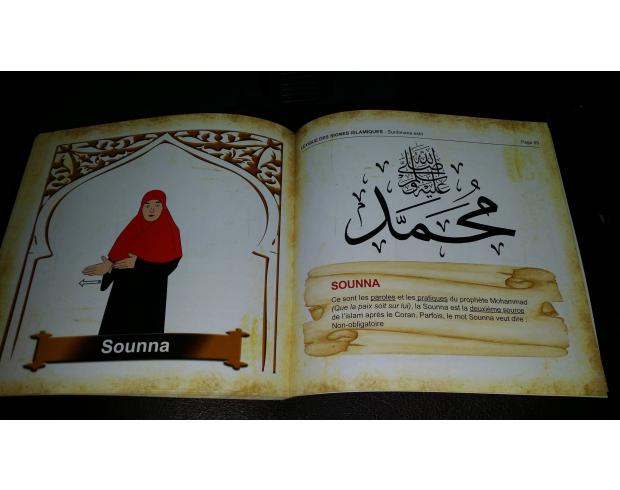 Sounna
LEXIQUE DES SIGNES ISLAMIQUES - Surdimane asbl
Page 95
صلى الله عليه وسلم
محمد
SOUNNA
Ce sont les paroles et les pratiques du prophète Mohammad
(Que la paix soit sur lui), la Sounna est la deuxième source
de l'islam après le Coran. Parfois, le mot Sounna veut dire :
Non-obligatoire